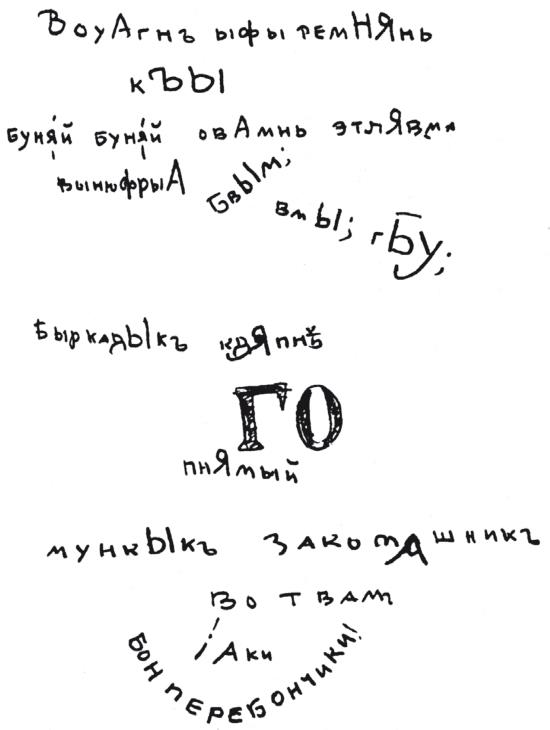 ВоуАгнъ ыфы темНЯнь
кЪЫ
буня́й буня́й овАмнь этлЯвма
выннюфрыА
БвЫм;
вмЫ; гБУ;
БыркадЫкъ
ГО
пнЯмый
мункЫкъ закомАшникъ
во т вам
i Аки
БОН ПЕРЕБОНЧИКИ!